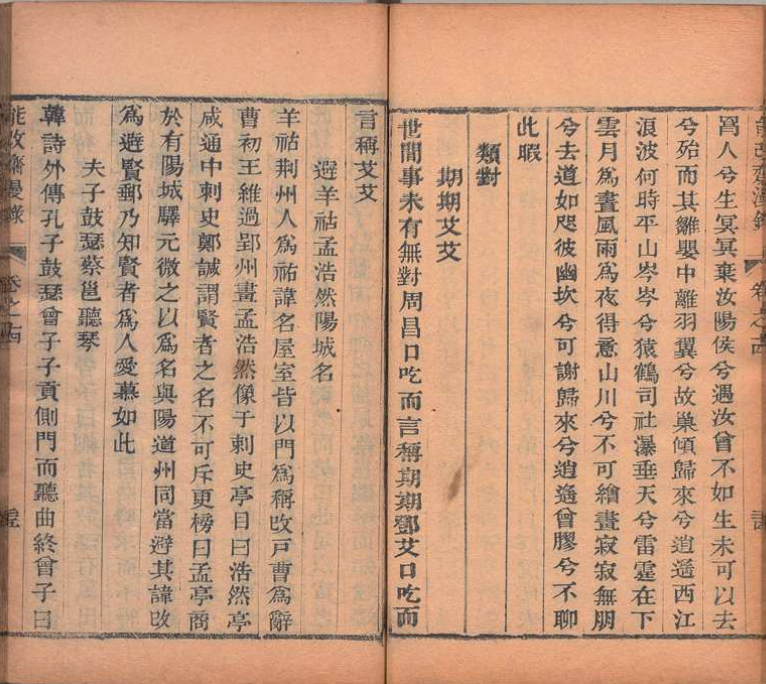 能改齋漫錄
卷之十四
爲人兮生冥冥棄汝陽侯兮遇汝曾不如生未可以去
兮殆而其雛嬰中離羽翼兮故巢傾歸來兮逍遙西江
浪波何時平山岑岑兮猿鶴司社瀑垂天兮雷霆在下
雲月爲晝風雨爲夜得意山川兮不可繪畫寂寂無朋
兮去道如咫彼幽坎兮可謝歸來兮逍遙曾膠兮不聊
此暇
類對
期期艾艾
世間事未有無對周昌口吃而言稱期期鄧艾口吃而
言稱艾艾
避羊祜孟浩然陽城名
羊祜荆州人爲祜諱名屋室皆以門爲稱改戸曹爲辭
曹初王維過郢州畫孟浩然像于刺史亭目曰浩然亭
咸通中刺史鄭諴謂賢者之名不可斥更榜曰孟亭商
於有陽城驛元微之以爲名與陽道州同當避其諱改
爲避賢郵乃知賢者爲人愛慕如此
夫子鼓瑟蔡邕聽琴
韓詩外傳孔子鼓瑟曾子子貢側門而聽曲終曾子曰
能改齋漫錄
卷之十四